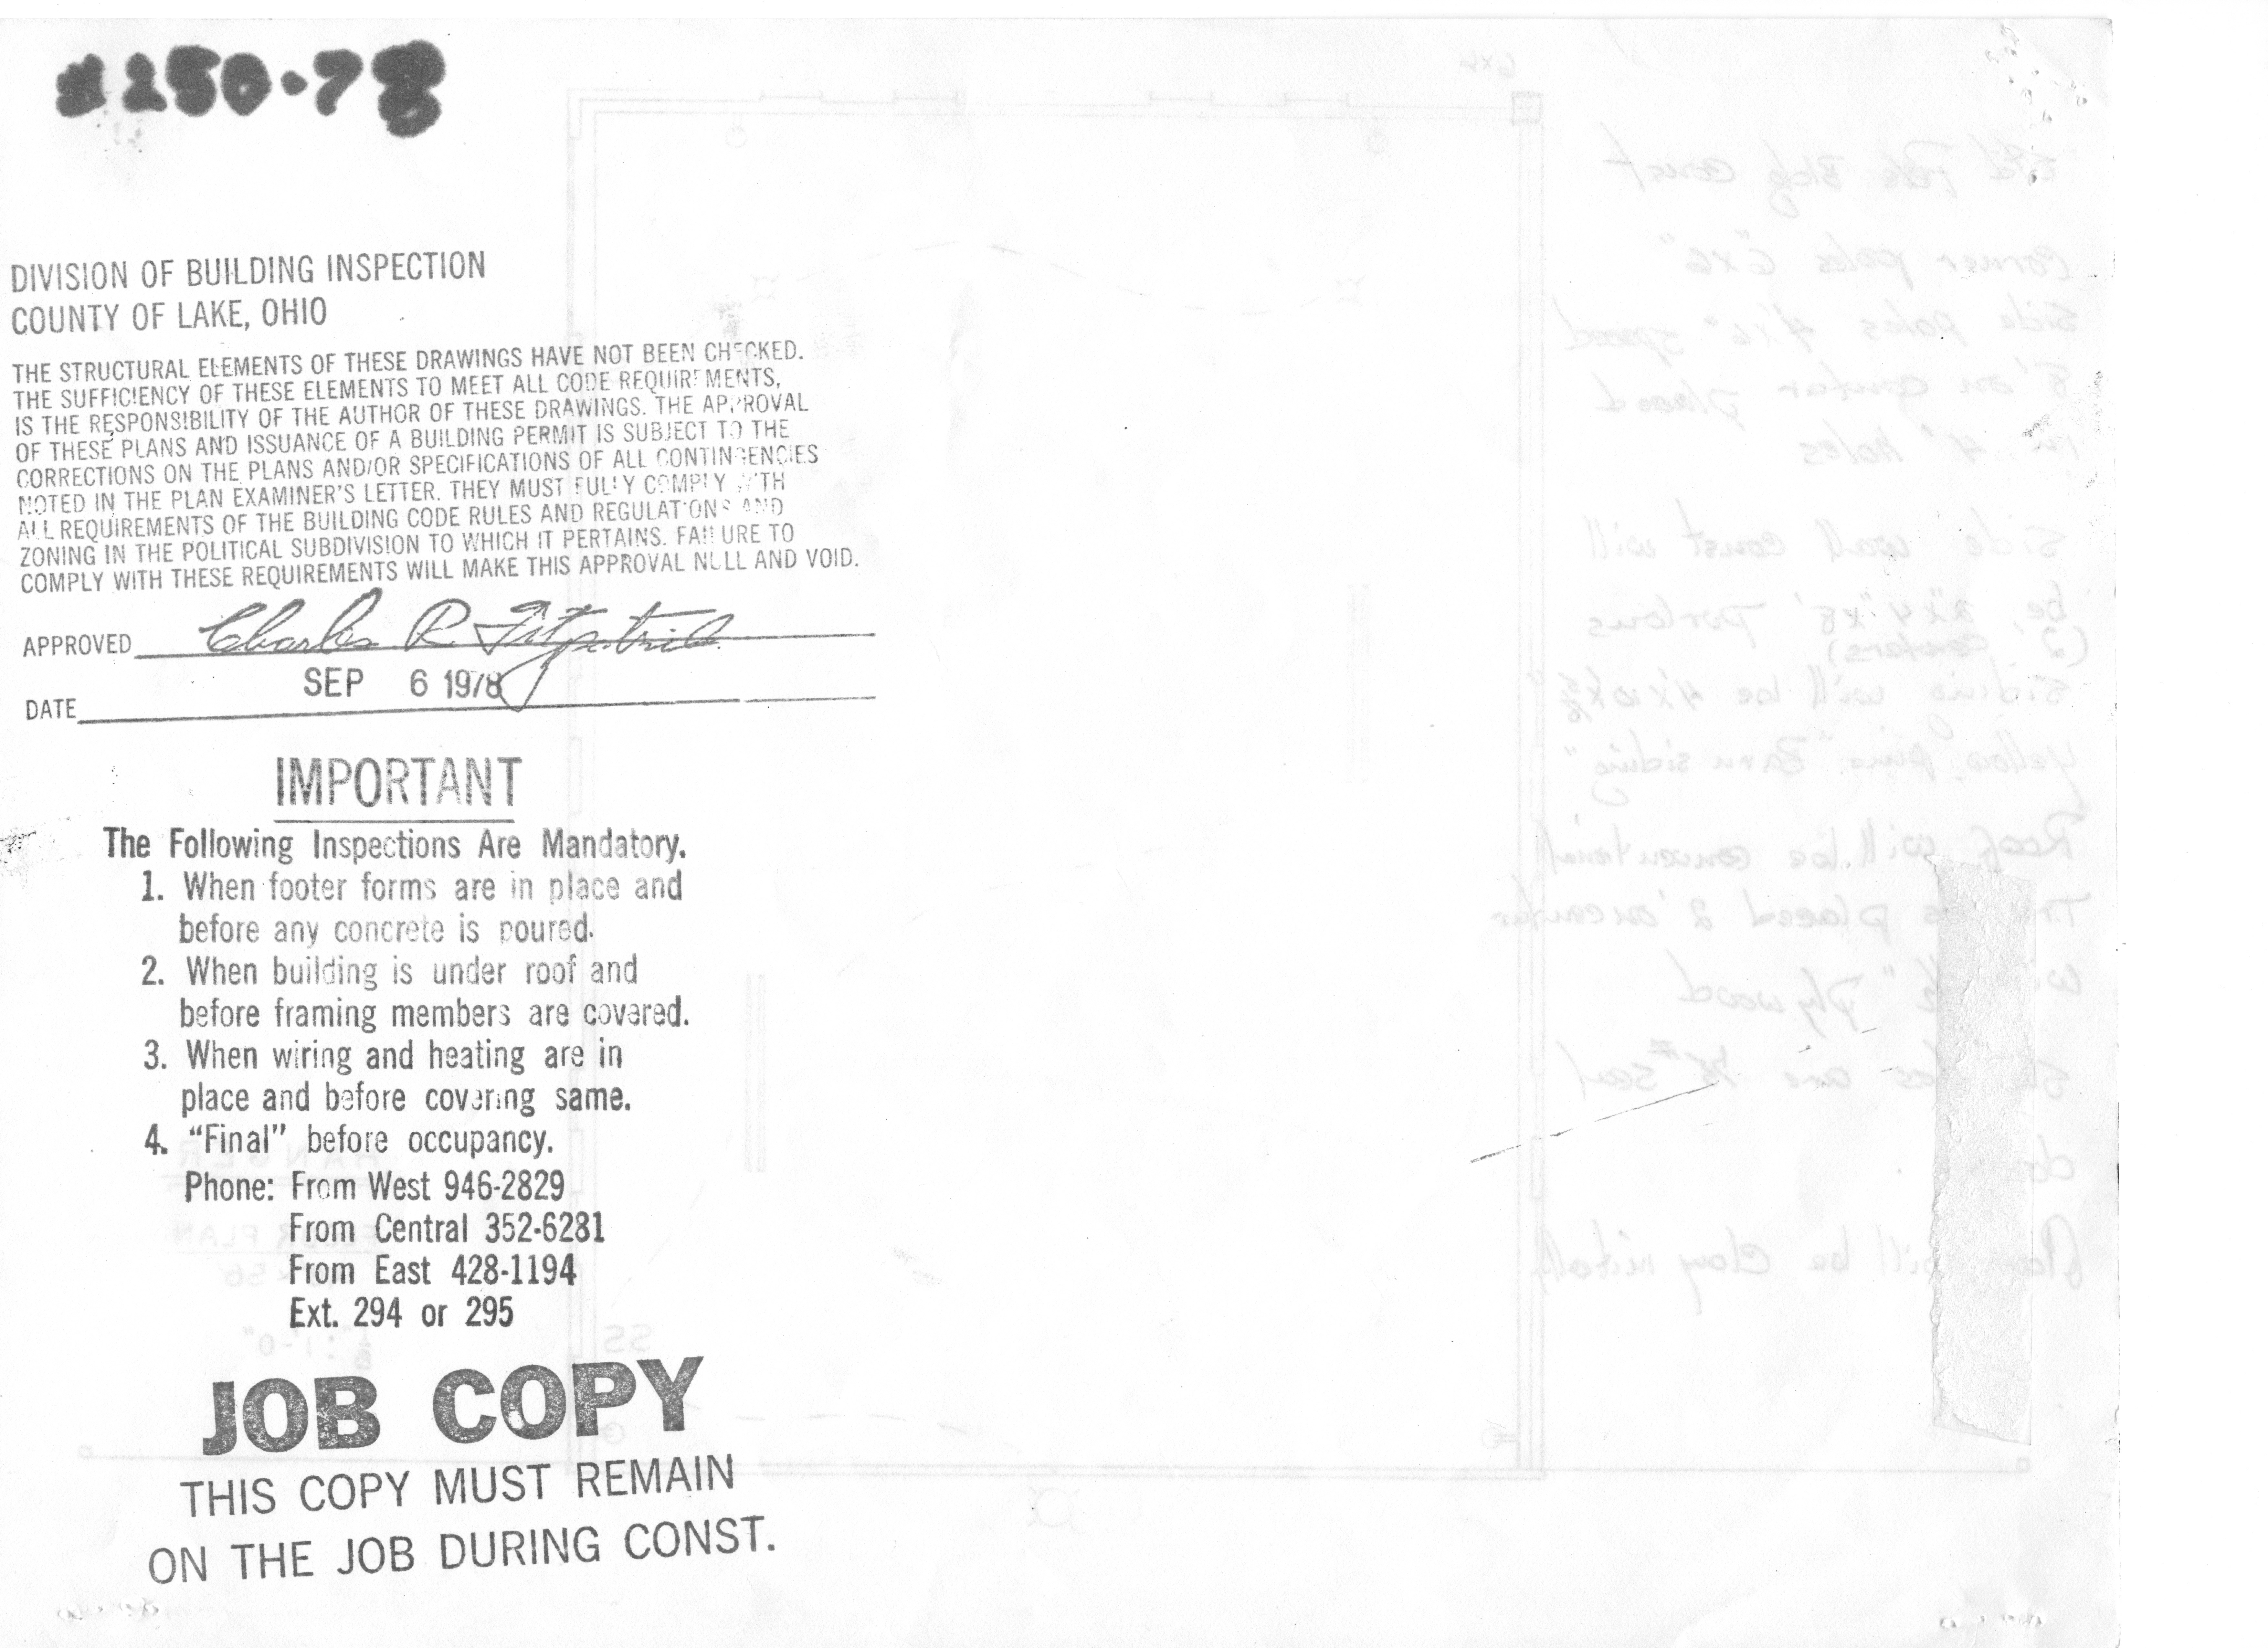 #250-78
DIVISION OF BUILDING INSPECTION
COUNTY OF LAKE, OHIO
THE STRUCTURAL ELEMENTS OF THESE DRAWINGS HAVE NOT BEEN CHECKED.
THE SUFFICIENCY OF THESE ELEMENTS TO MEET ALL CODE REQUIREMENTS,
IS THE RESPONSIBILITY OF THE AUTHOR OF THESE DRAWINGS. THE APPROVAL
OF THESE PLANS AND ISSUANCE OF A BUILDING PERMIT IS SUBJECT TO THE
CORRECTIONS ON THE PLANS AND/OR SPECIFICATIONS OF ALL CONTINGENCIES
NOTED IN THE PLAN EXAMINER'S LETTER. THEY MUST FULLY COMPLY WITH
ALL REQUIREMENTS OF THE BUILDING CODE RULES AND REGULATIONS AND
ZONING IN THE POLITICAL SUBDIVISION TO WHICH IT PERTAINS. FAILURE TO
COMPLY WITH THESE REQUIREMENTS WILL MAKE THIS APPROVAL NULL AND VOID.
APPROVED Charles R. Fitzpatrick
DATE SEP 6 1978
IMPORTANT
The Following Inspections Are Mandatory.
1. When footer forms are in place and
before any concrete is poured.
2. When building is under roof and
before framing members are covered.
3. When wiring and heating are in
place and before covering same.
4. "Final" before occupancy.
Phone: From West 946-2829
From Central 352-6281
From East 428-1194
Ext. 294 or 295
JOB COPY
THIS COPY MUST REMAIN
ON THE JOB DURING CONST.
6x6
Std Pole Bldg const
corner poles 6"x6"
side poles 4"x6" spaced
8' on center placed
in 4' holes
Side wall const will
be, 2"x4"x8'
(2' centers)
siding will be 4'x10'x5/8"
yellow pine "Barn siding"
Roof will be conventional
placed 2' on center
plywood
are seal
will be clay
HANGER
FLOOR PLAN
56
1'-0"
SS